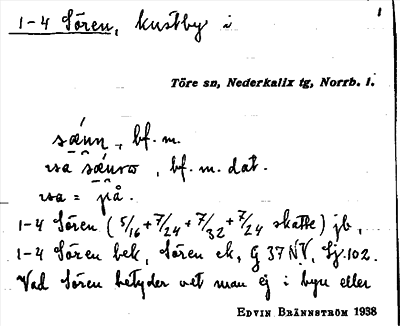 1-4 Sören, kustby i
1
Töre sn, Nederkalix tg, Norrb. l.
sǽnn, bf. m.
wa sǽnro, bf. m. dat.
wa = på.
1-4 Sören (5/16 + 7/24 + 7/32 + 7/24 skatte) jb,
1-4 Sören bek, Sören ek, G 37 NV, Sj. 102.
Vad Sören betyder vet man ej i byn eller
EDVIN BRÄNNSTRÖM 1938